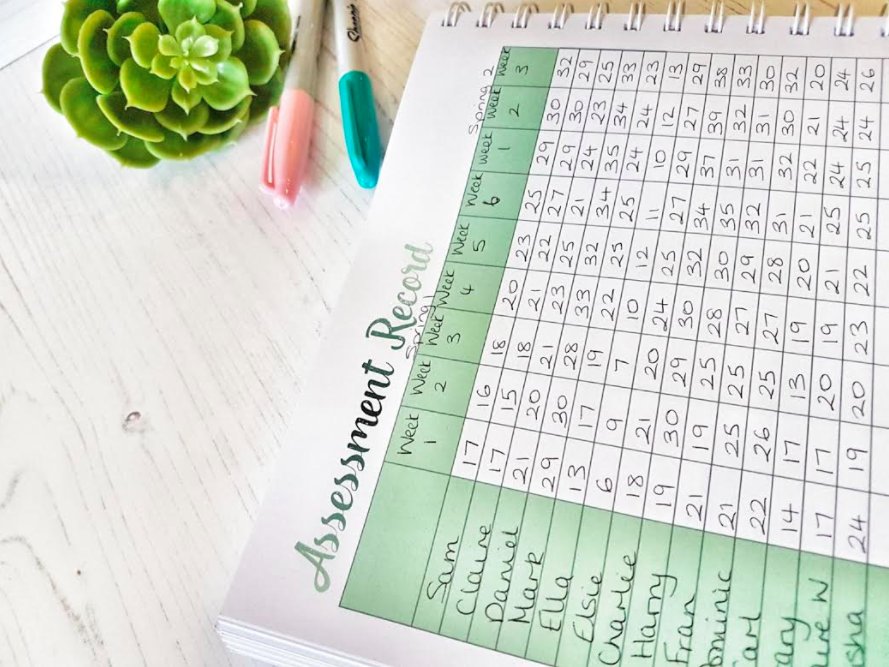 Sharpie
Assessment Record
Spring 1 Spring 2
Week 1 Week 2 Week 3 Week 4 Week 5 Week 6 Week 1 Week 2 Week 3
Sam 17 16 18 20 23 25 29 30 32
Claire 17 15 18 21 22 27 29 30 29
Daniel 21 20 21 23 25 21 24 23 25
Mark 29 30 28 33 32 34 35 34 33
Ella 13 17 19 22 25 25 24 24 23
Elsie 6 9 7 10 12 11 10 12 13
Charlie 18 21 20 24 25 27 29 27 29
Harry 19 30 29 30 32 34 37 39 38
Fran 21 19 25 28 30 35 31 32 33
ominic 21 25 25 27 29 32 31 31 30
arl 22 26 25 27 28 31 32 30 32
ary 14 17 13 19 20 21 22 21 20
ire W 17 17 20 19 21 25 24 24 24
sha 24 19 20 23 22 25 25 24 26